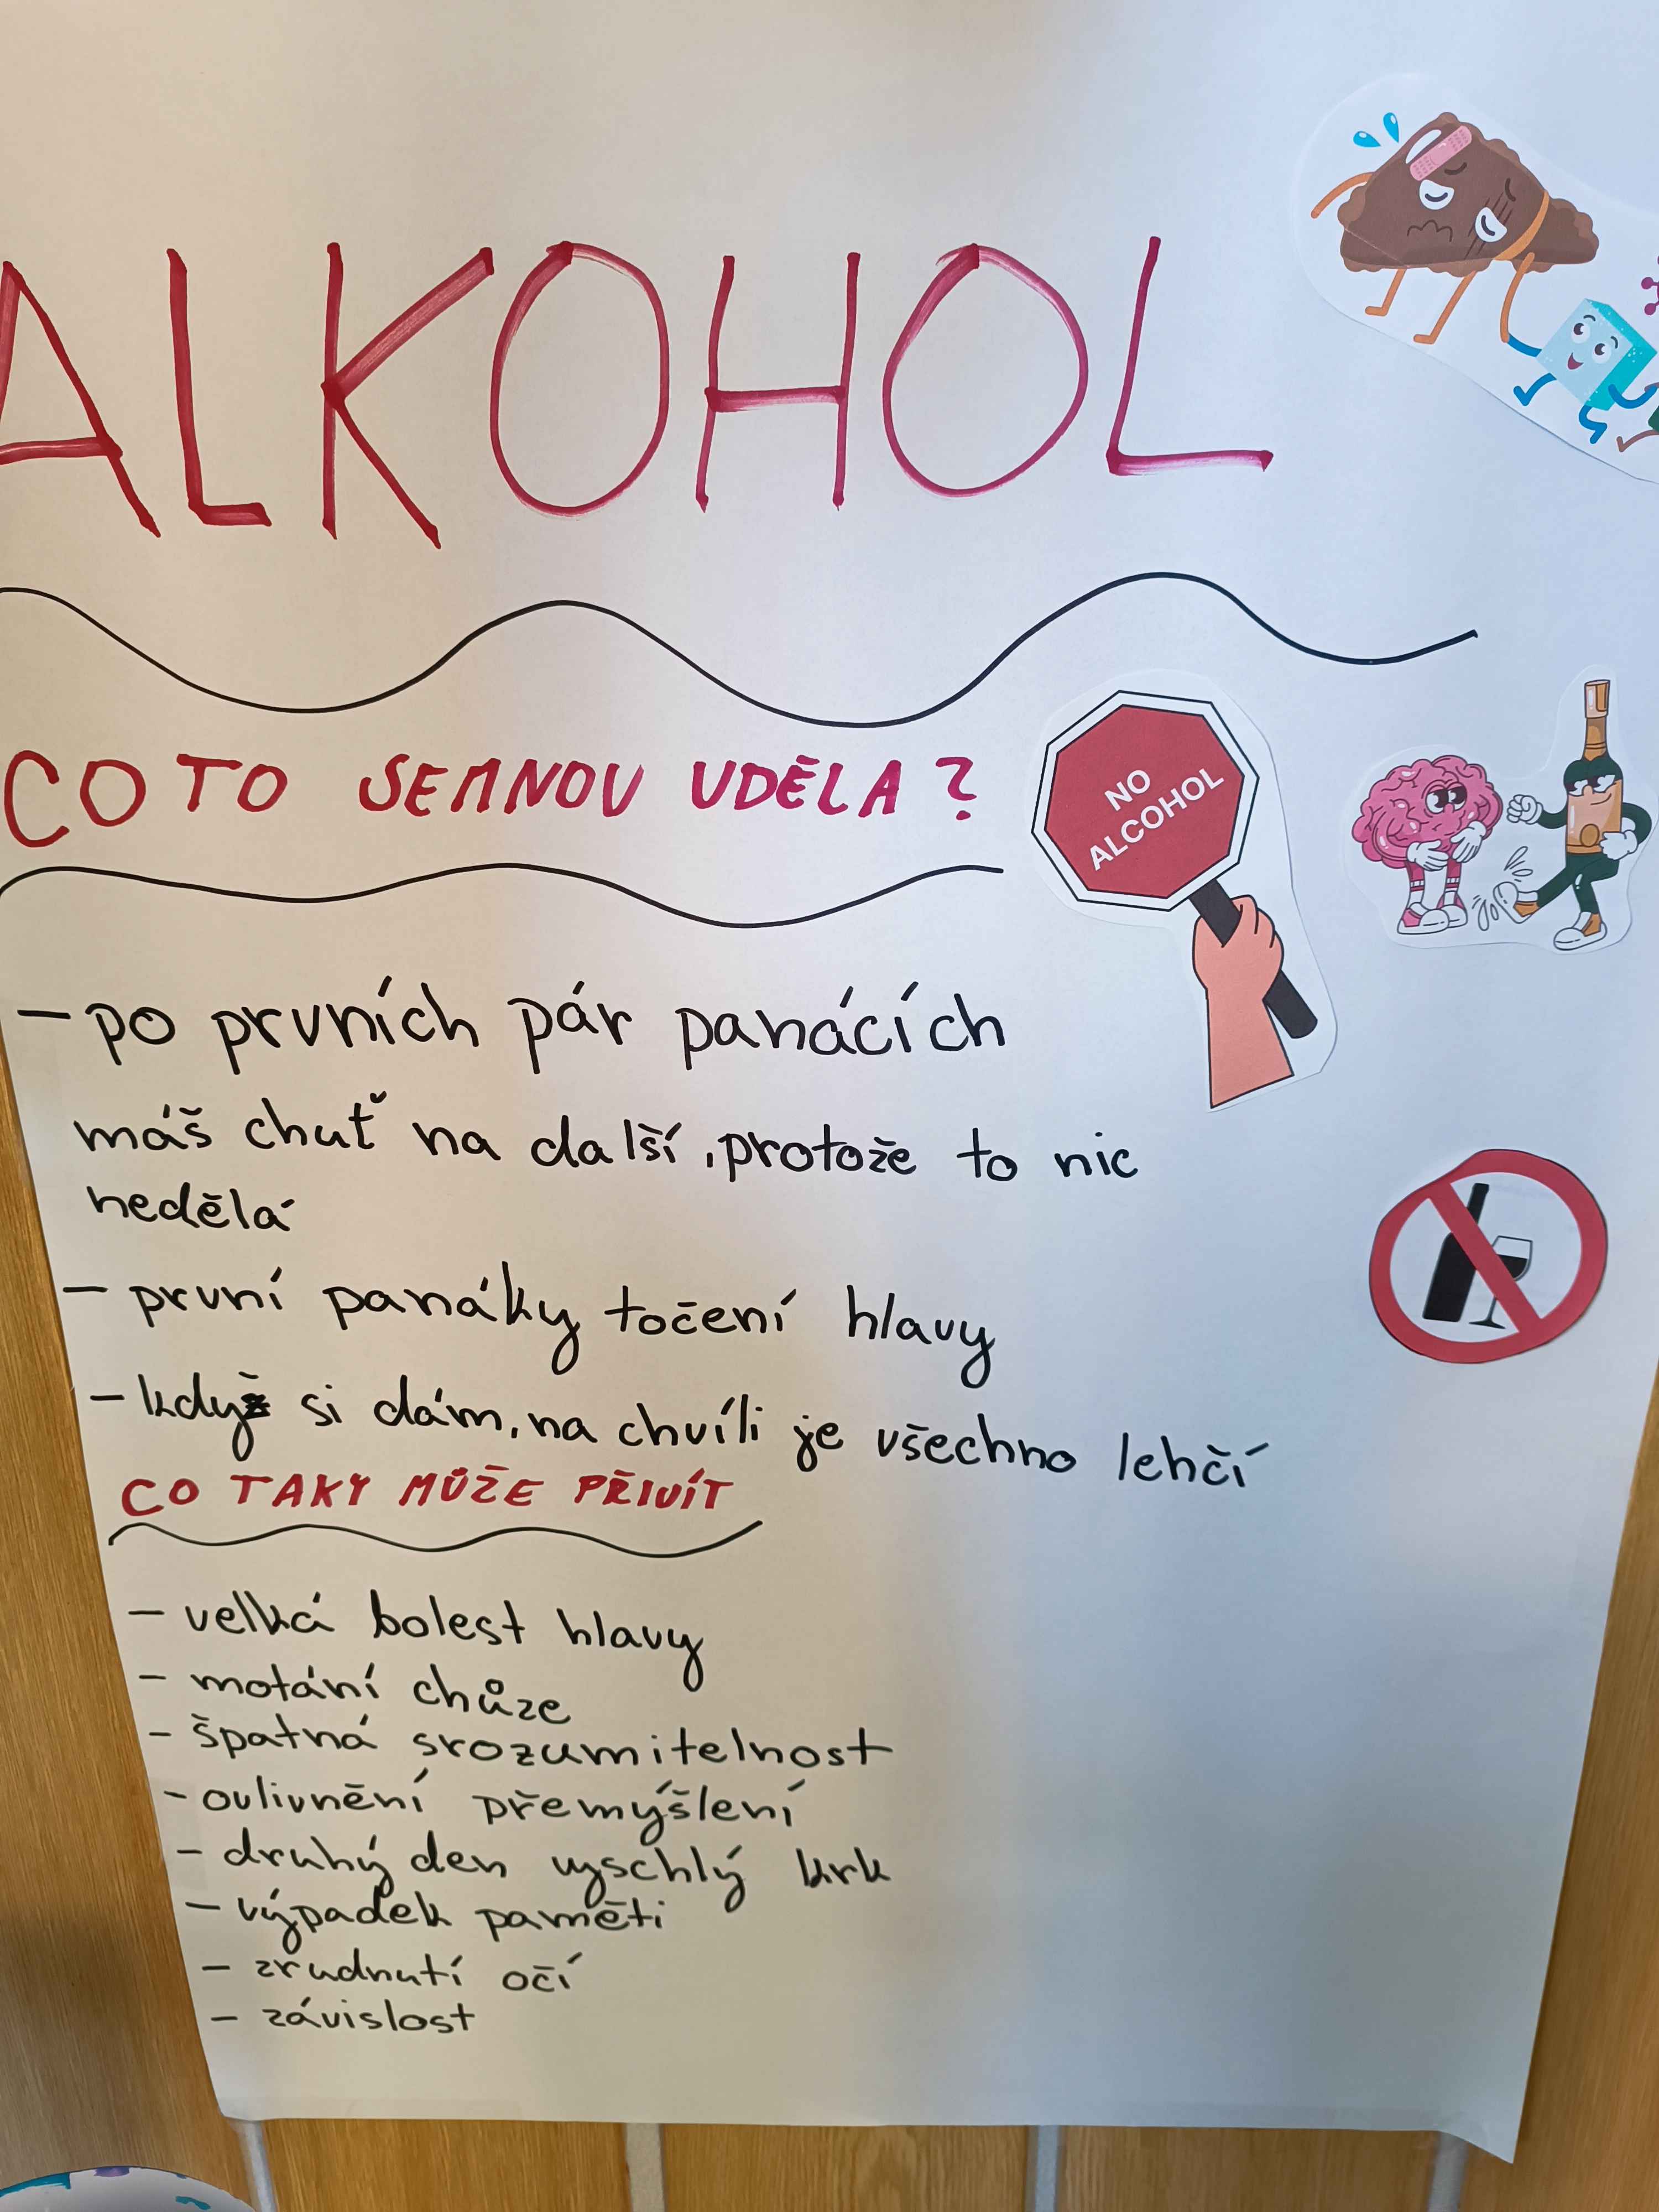 ALKOHOL
CO TO SEMNOU UDĚLA?
NO
ALCOHOL
- po prvních pár panácích
máš chuť na další, protože to nic
nedělá
- první panáky točení hlavy
- když si dám, na chvíli je všechno lehčí
CO TAKY MŮŽE PŘIVÍT
- velká bolest hlavy
- motání chůze
- špatná srozumitelnost
- ovlivnění přemýšlení
- druhý den vyschlý krk
- výpadek paměti
- zrudnutí očí
- závislost